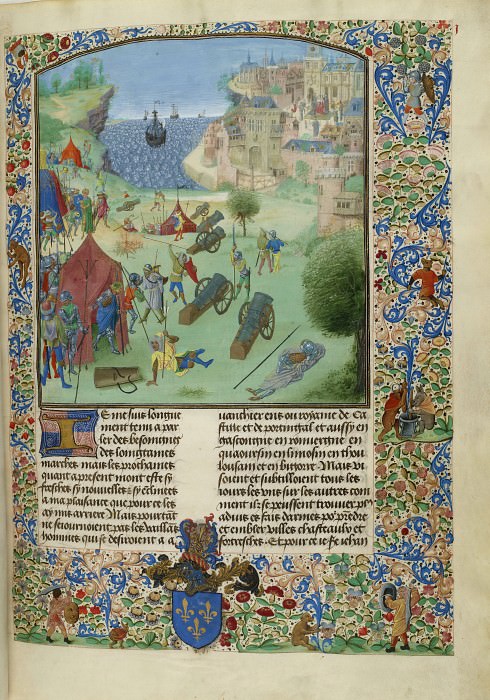 Ie me suis longue
ment tenu a par
ler des besoingnes
des loingtaines
marches mais les prochaines
quant a present mont este sy
fresches sy nouuelles et sy enclinees
a ma plaisance que pour ce les
ay mis arriere Mais pourtāt
ne seiournoient pas les vaillās
hommes qui se desiroient a a
uanchier ens ou royaume de ca
stille et de portingal et aussy en
gascoingne en rouuergue en
quaoursin en limosin en thou
lousain et en bigorre Mais vi
soient et subtilloient tous les
iours les vns sur les autres com
ment ilz se peussent trouuer par
aduis et fais darmes pour prēdre
et embler villes chasteaulx et
forteresches Et pour ce Ie Iehan